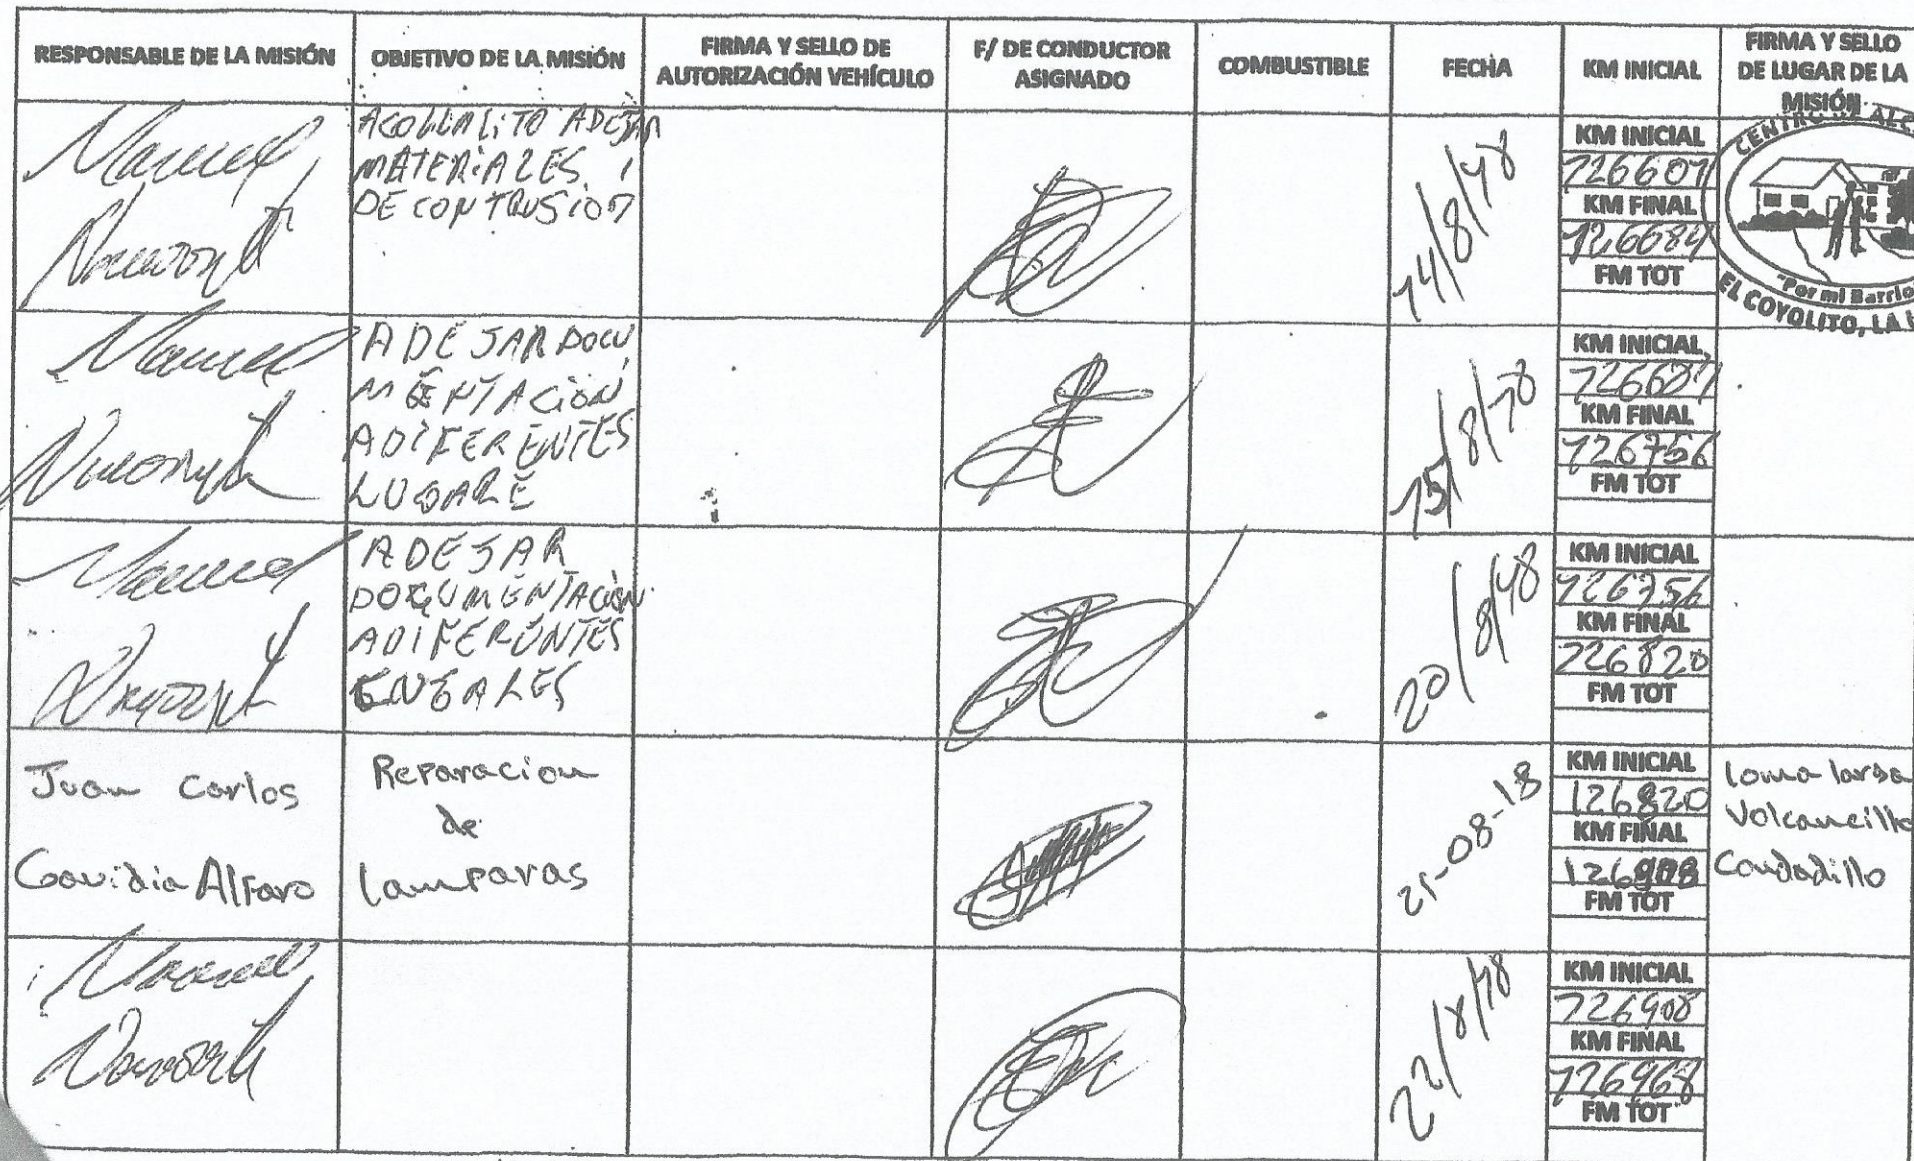 RESPONSABLE DE LA MISIÓN
OBJETIVO DE LA MISIÓN
FIRMA Y SELLO DE
AUTORIZACIÓN VEHÍCULO
F/ DE CONDUCTOR
ASIGNADO
COMBUSTIBLE
FECHA
KM INICIAL
FIRMA Y SELLO
DE LUGAR DE LA
MISIÓN
Manuel
MATERIALES
DE CONTRUSION
14/8/18
KM INICIAL
126607
KM FINAL
126684
FM TOT
CENTRO DE ALC
"Por mi Barrio
EL COYOLITO, LA
Manuel
A DEJAR DOCU
MENTACION
ADIFERENTES
LUGARE
15/8/18
KM INICIAL
126687
KM FINAL
126756
FM TOT
Manuel
A DEJAR
DOCUMENTACION
ADIFERENTES
20/8/18
KM INICIAL
126756
KM FINAL
126820
FM TOT
Juan Carlos
Gavidia Alfaro
Reparacion
de
lamparas
21-08-18
KM INICIAL
126820
KM FINAL
126908
FM TOT
loma larga
Volcancillo
Candadillo
Manuel
22/8/18
KM INICIAL
126908
KM FINAL
126968
FM TOT